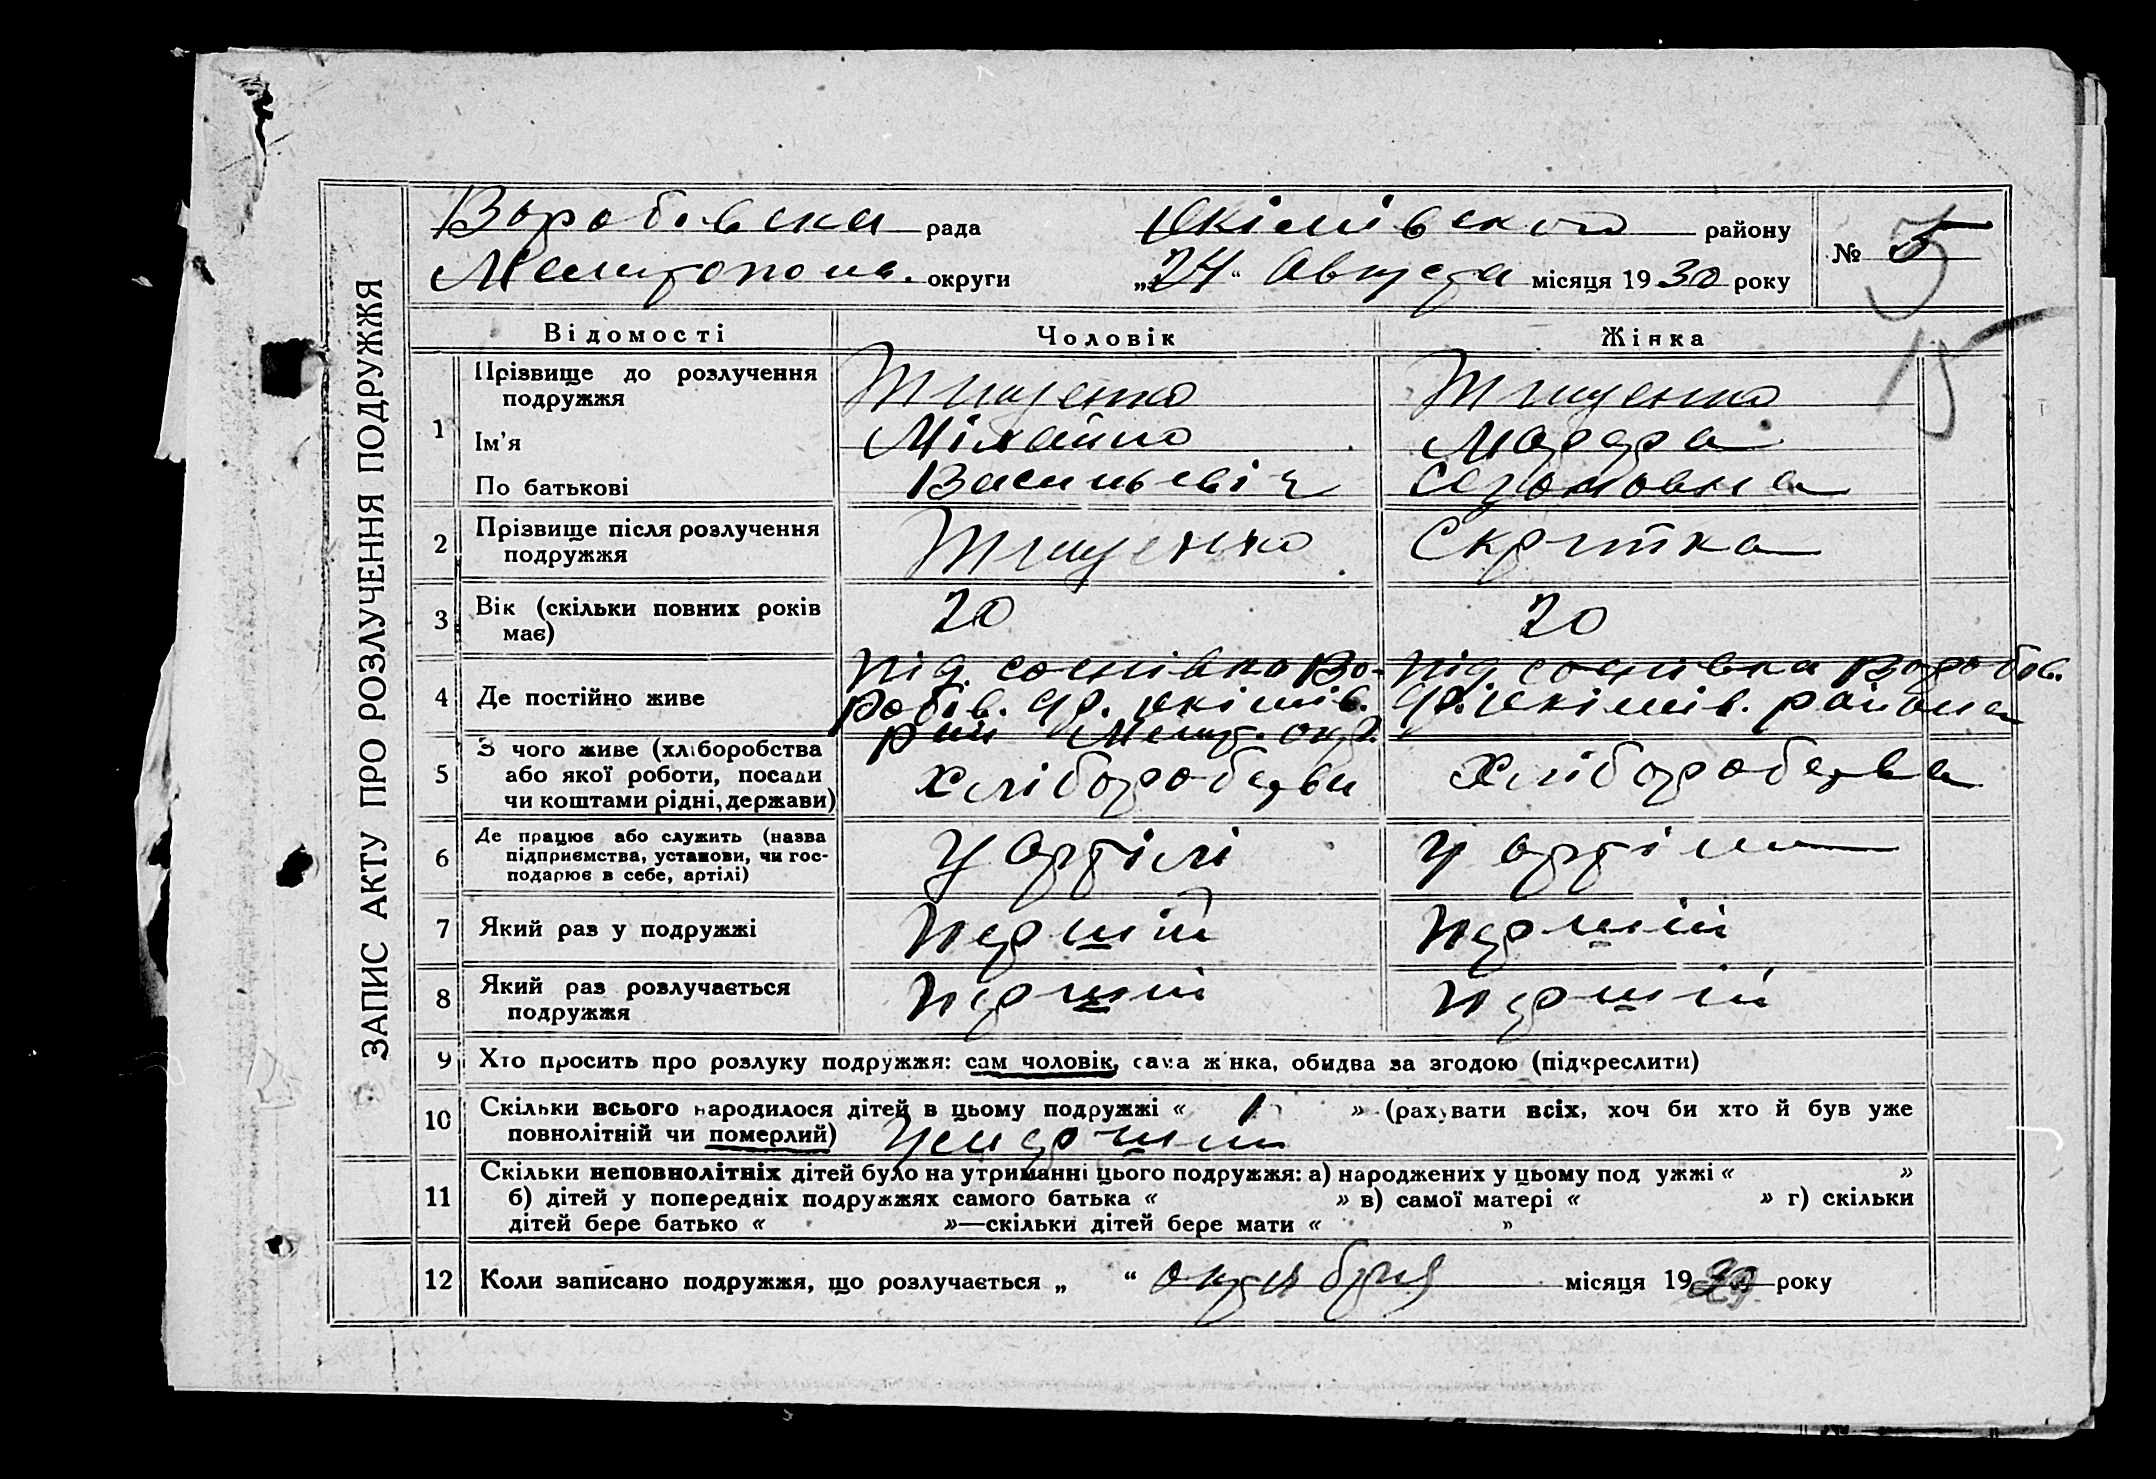 ЗАПИС АКТУ ПРО РОЗЛУЧЕННЯ ПОДРУЖЖЯ
Воробівска рада Якімівского району № 5
Мелитополь. округи „24“ Августа місяця 1930 року
5
15
Відомості Чоловік Жінка
1 Прізвище до розлучення подружжя Тищенко Тищенко
Ім'я Міхайло Марфа
По батькові Васильевіч
2 Прізвище після розлучення подружжя Тищенко Скрипка
3 Вік (скільки повних років має) 20 20
4 Де постійно живе
під. сослівка Во- під сослівка Воробів.
робів. с/р. Якімів. с/р. Якімів. района
рай Меліт. окр.
5 З чого живе (хліборобства
або якої роботи, посади
чи коштами рідні, держави)
хліборобства хліборобства
6 Де працює або служить (назва
підприємства, установи, чи гос-
подарює в себе, артілі)
у артілі у артілі
7 Який раз у подружжі першій першій
8 Який раз розлучається
подружжя першій першій
9 Хто просить про розлуку подружжя: сам чоловік, сама жінка, обидва за згодою (підкреслити)
10 Скільки всього народилося дітей в цьому подружжі « 1 » (рахувати всіх, хоч би хто й був уже
повнолітній чи померлий)
11 Скільки неповнолітніх дітей було на утриманні цього подружжя: а) народжених у цьому подружжі « »
б) дітей у попередніх подружжях самого батька « » в) самої матері « » г) скільки
дітей бере батько « »—скільки дітей бере мати « »
12 Коли записано подружжя, що розлучається „ “ октября місяця 1929 року